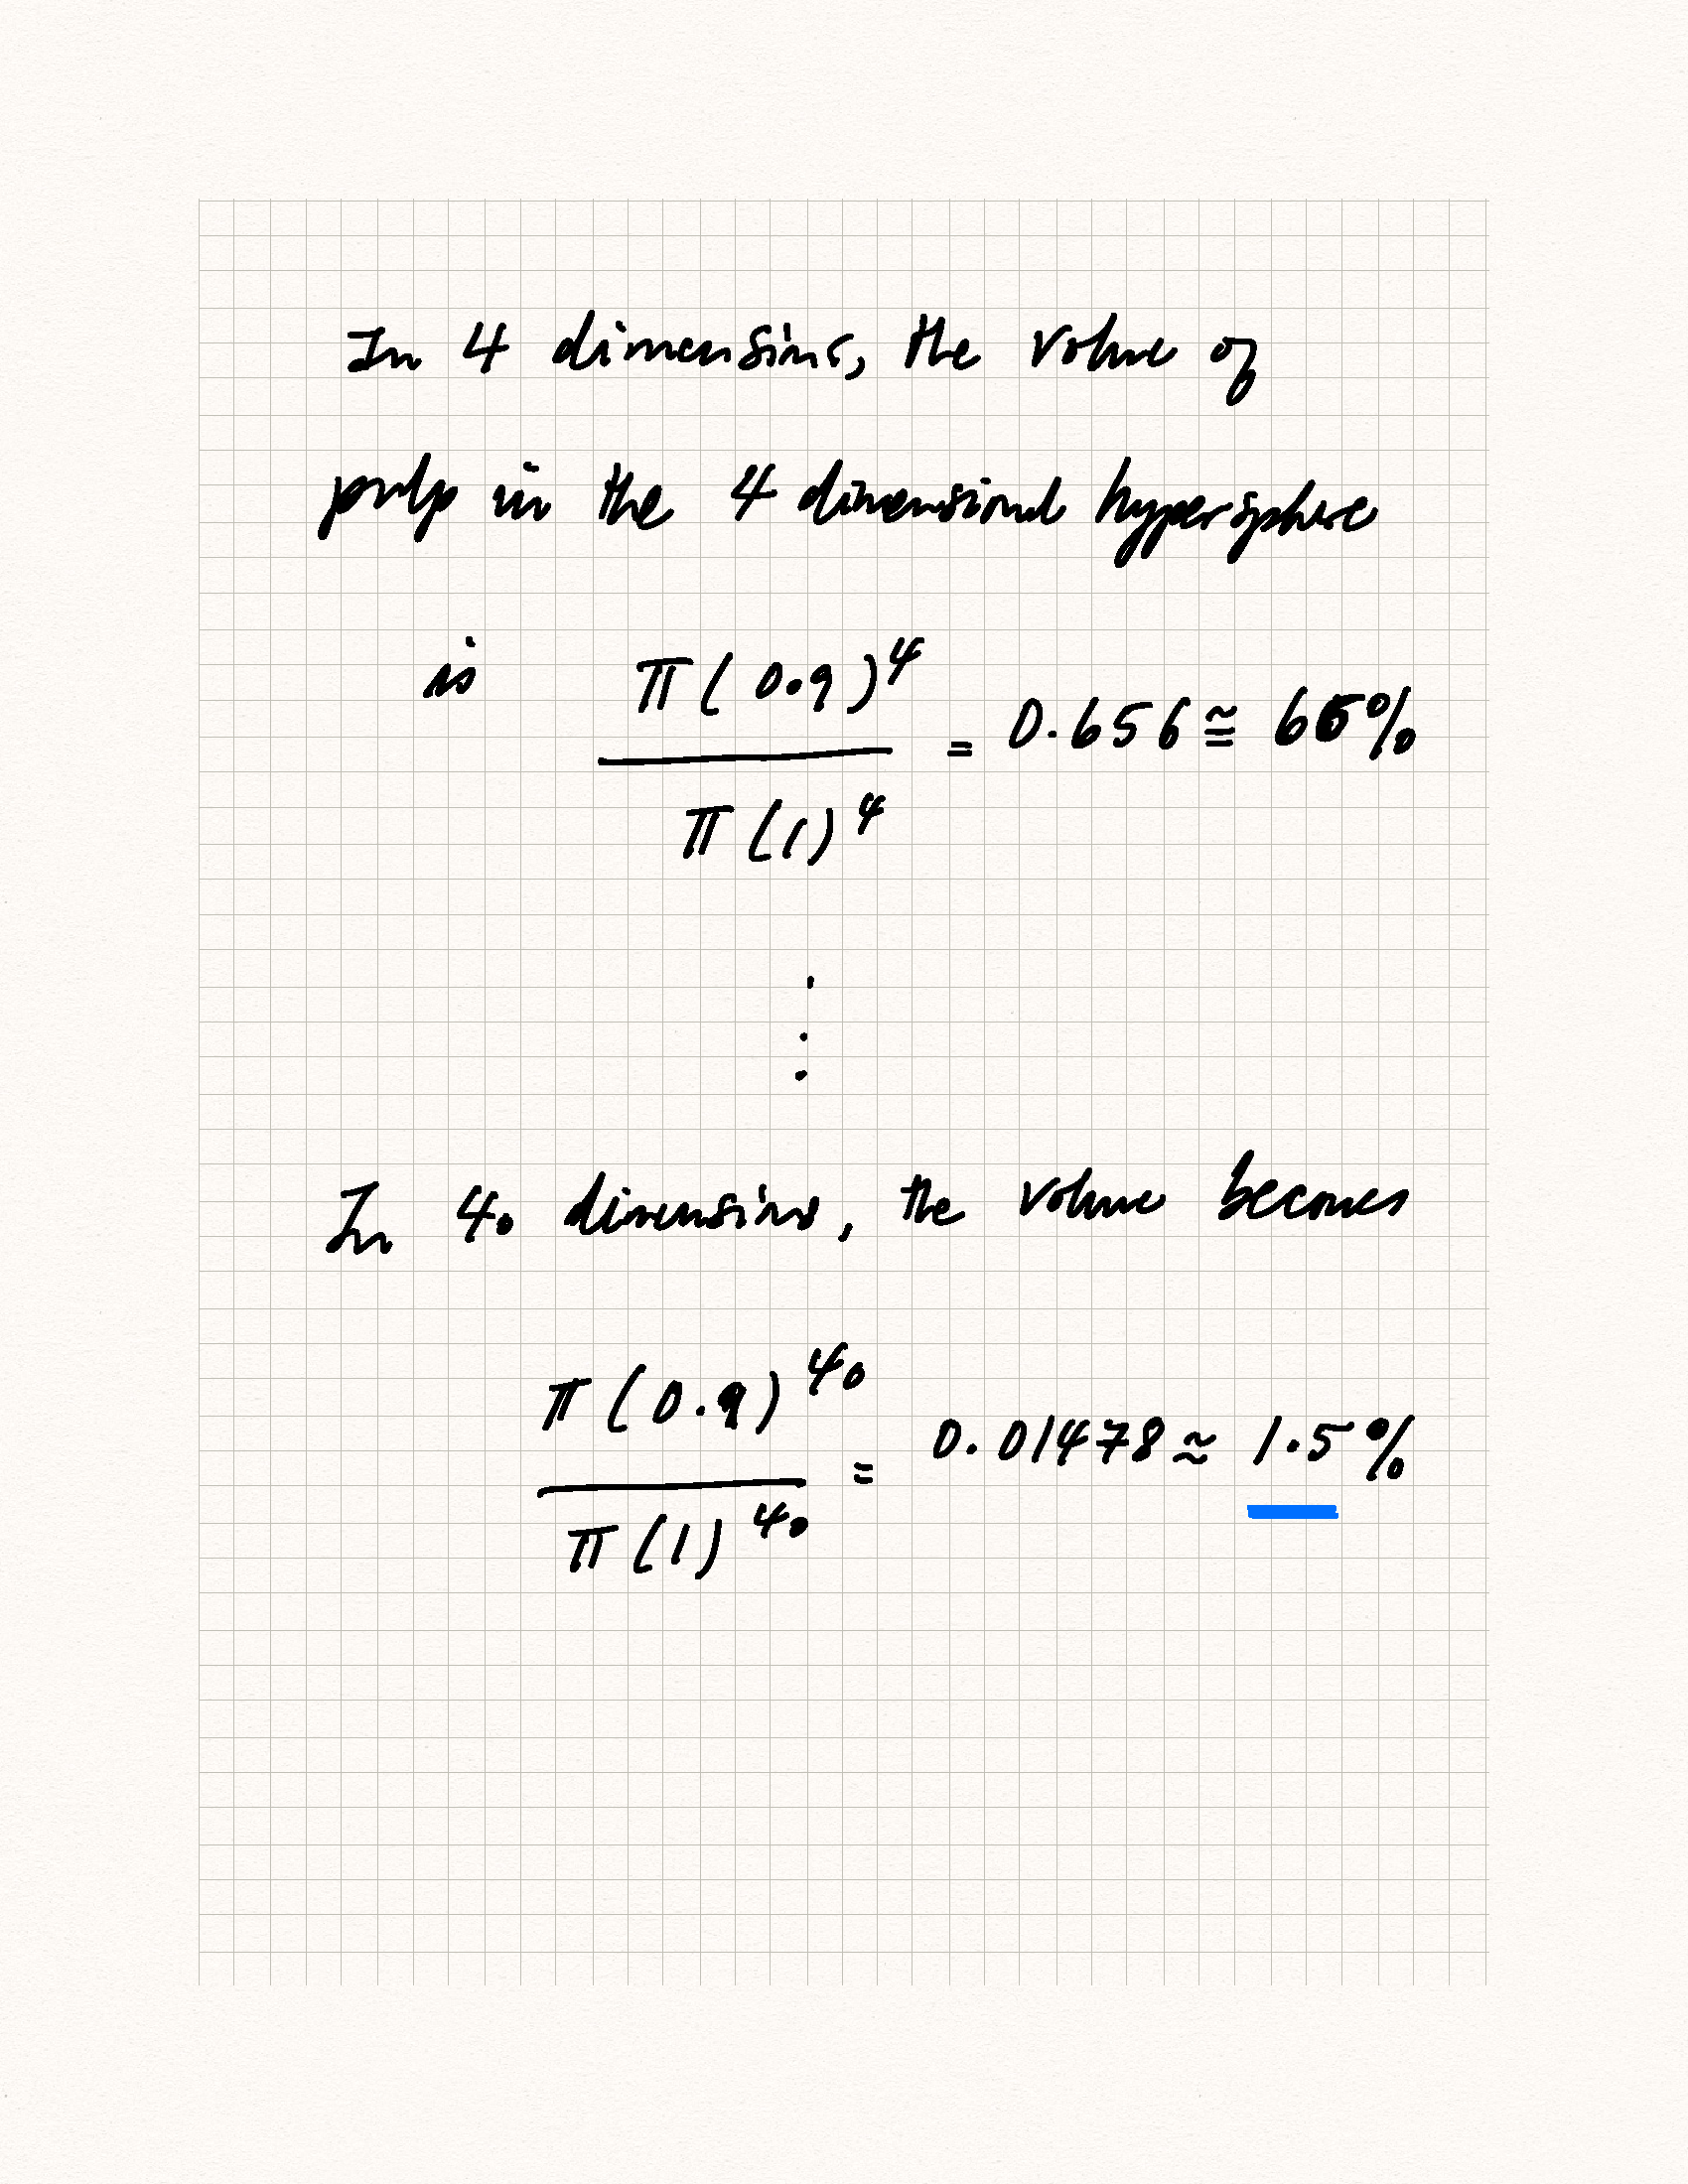 In 4 dimensions, the volume of
pulp in the 4 dimensional hypersphere
is π(0.9)^4 / π(1)^4 = 0.656 ≅ 66%
⋮
In 40 dimensions, the volume becomes
π(0.9)^40 / π(1)^40 = 0.01478 ≈ 1.5%